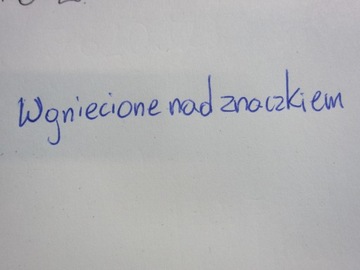 Wgniecione nad znaczkiem